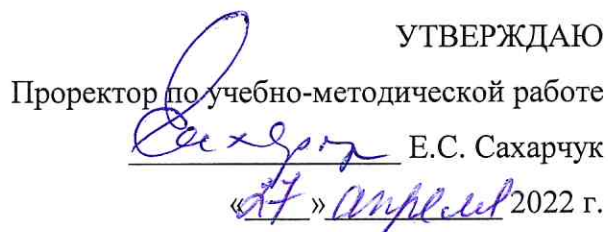 УТВЕРЖДАЮ
Проректор по учебно-методической работе
Сахарчук Е.С. Сахарчук
«27» апреля 2022 г.